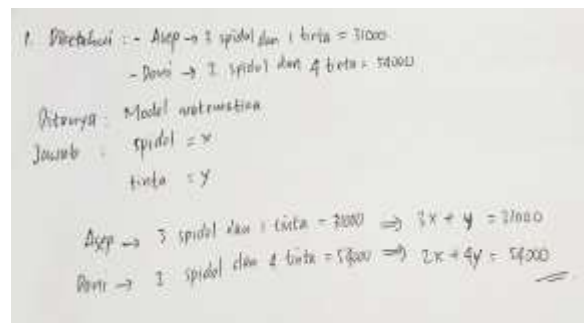 1. Diketahui : - Asep → 3 spidol dan 1 tinta = 31000
- Doni → 2 spidol dan 4 tinta = 54000
Ditanya : Model matematika
Jawab : spidol = x
tinta = y
Asep → 3 spidol dan 1 tinta = 31000 ⇒ 3x + y = 31000
Doni → 2 spidol dan 4 tinta = 54000 ⇒ 2x + 4y = 54000